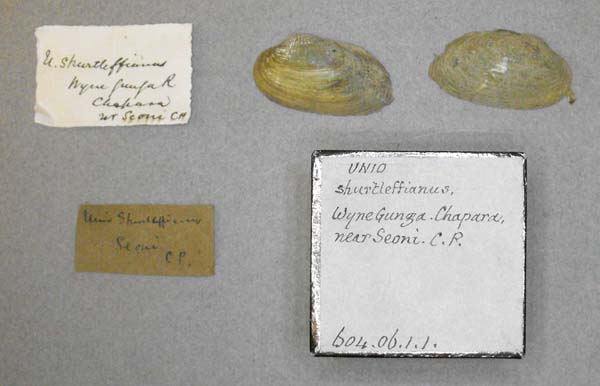 U. Shurtleffianus
Wyne Gunga R
Chapara
nr Seoni C.P.
Unio Shurtleffianus
Seoni
C.P.
UNIO
shurtleffianus,
Wyne Gunga. Chapara,
near Seoni. C.P.
604.06.1.1.